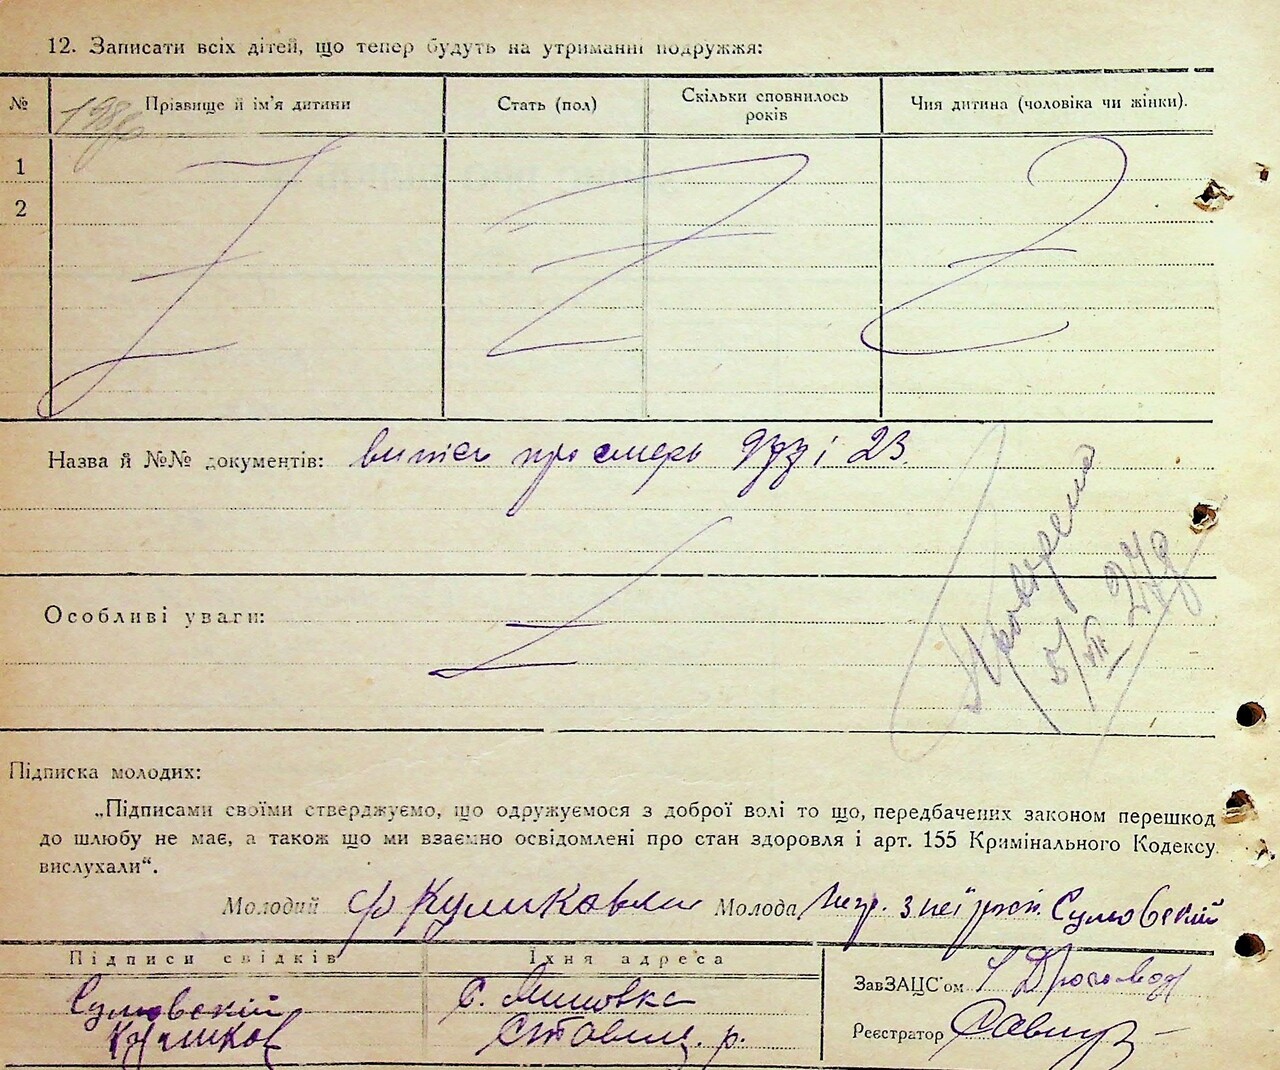 12. Записати всіх дітей, що тепер будуть на утриманні подружжя:
№ Прізвище й ім'я дитини Стать (пол) Скільки сповнилось років Чия дитина (чоловіка чи жінки).
1
2
Назва й №№ документів: випись про смерь і 23.
Особливі уваги:
5/VII
Підписка молодих:
„Підписами своїми стверджуємо, що одружуємося з доброї волі то що, передбачених законом перешкод
до шлюбу не має, а також що ми взаємно освідомлені про стан здоровля і арт. 155 Кримінального Кодексу
вислухали“.
Молодий Ф Куликовски Молода Негр. з неї росп. Сумовский
Підписи свідків Їхня адреса
Сумовский с. Миновка ЗавЗАЦС'ом
Куликов Ставищ. р. Реєстратор